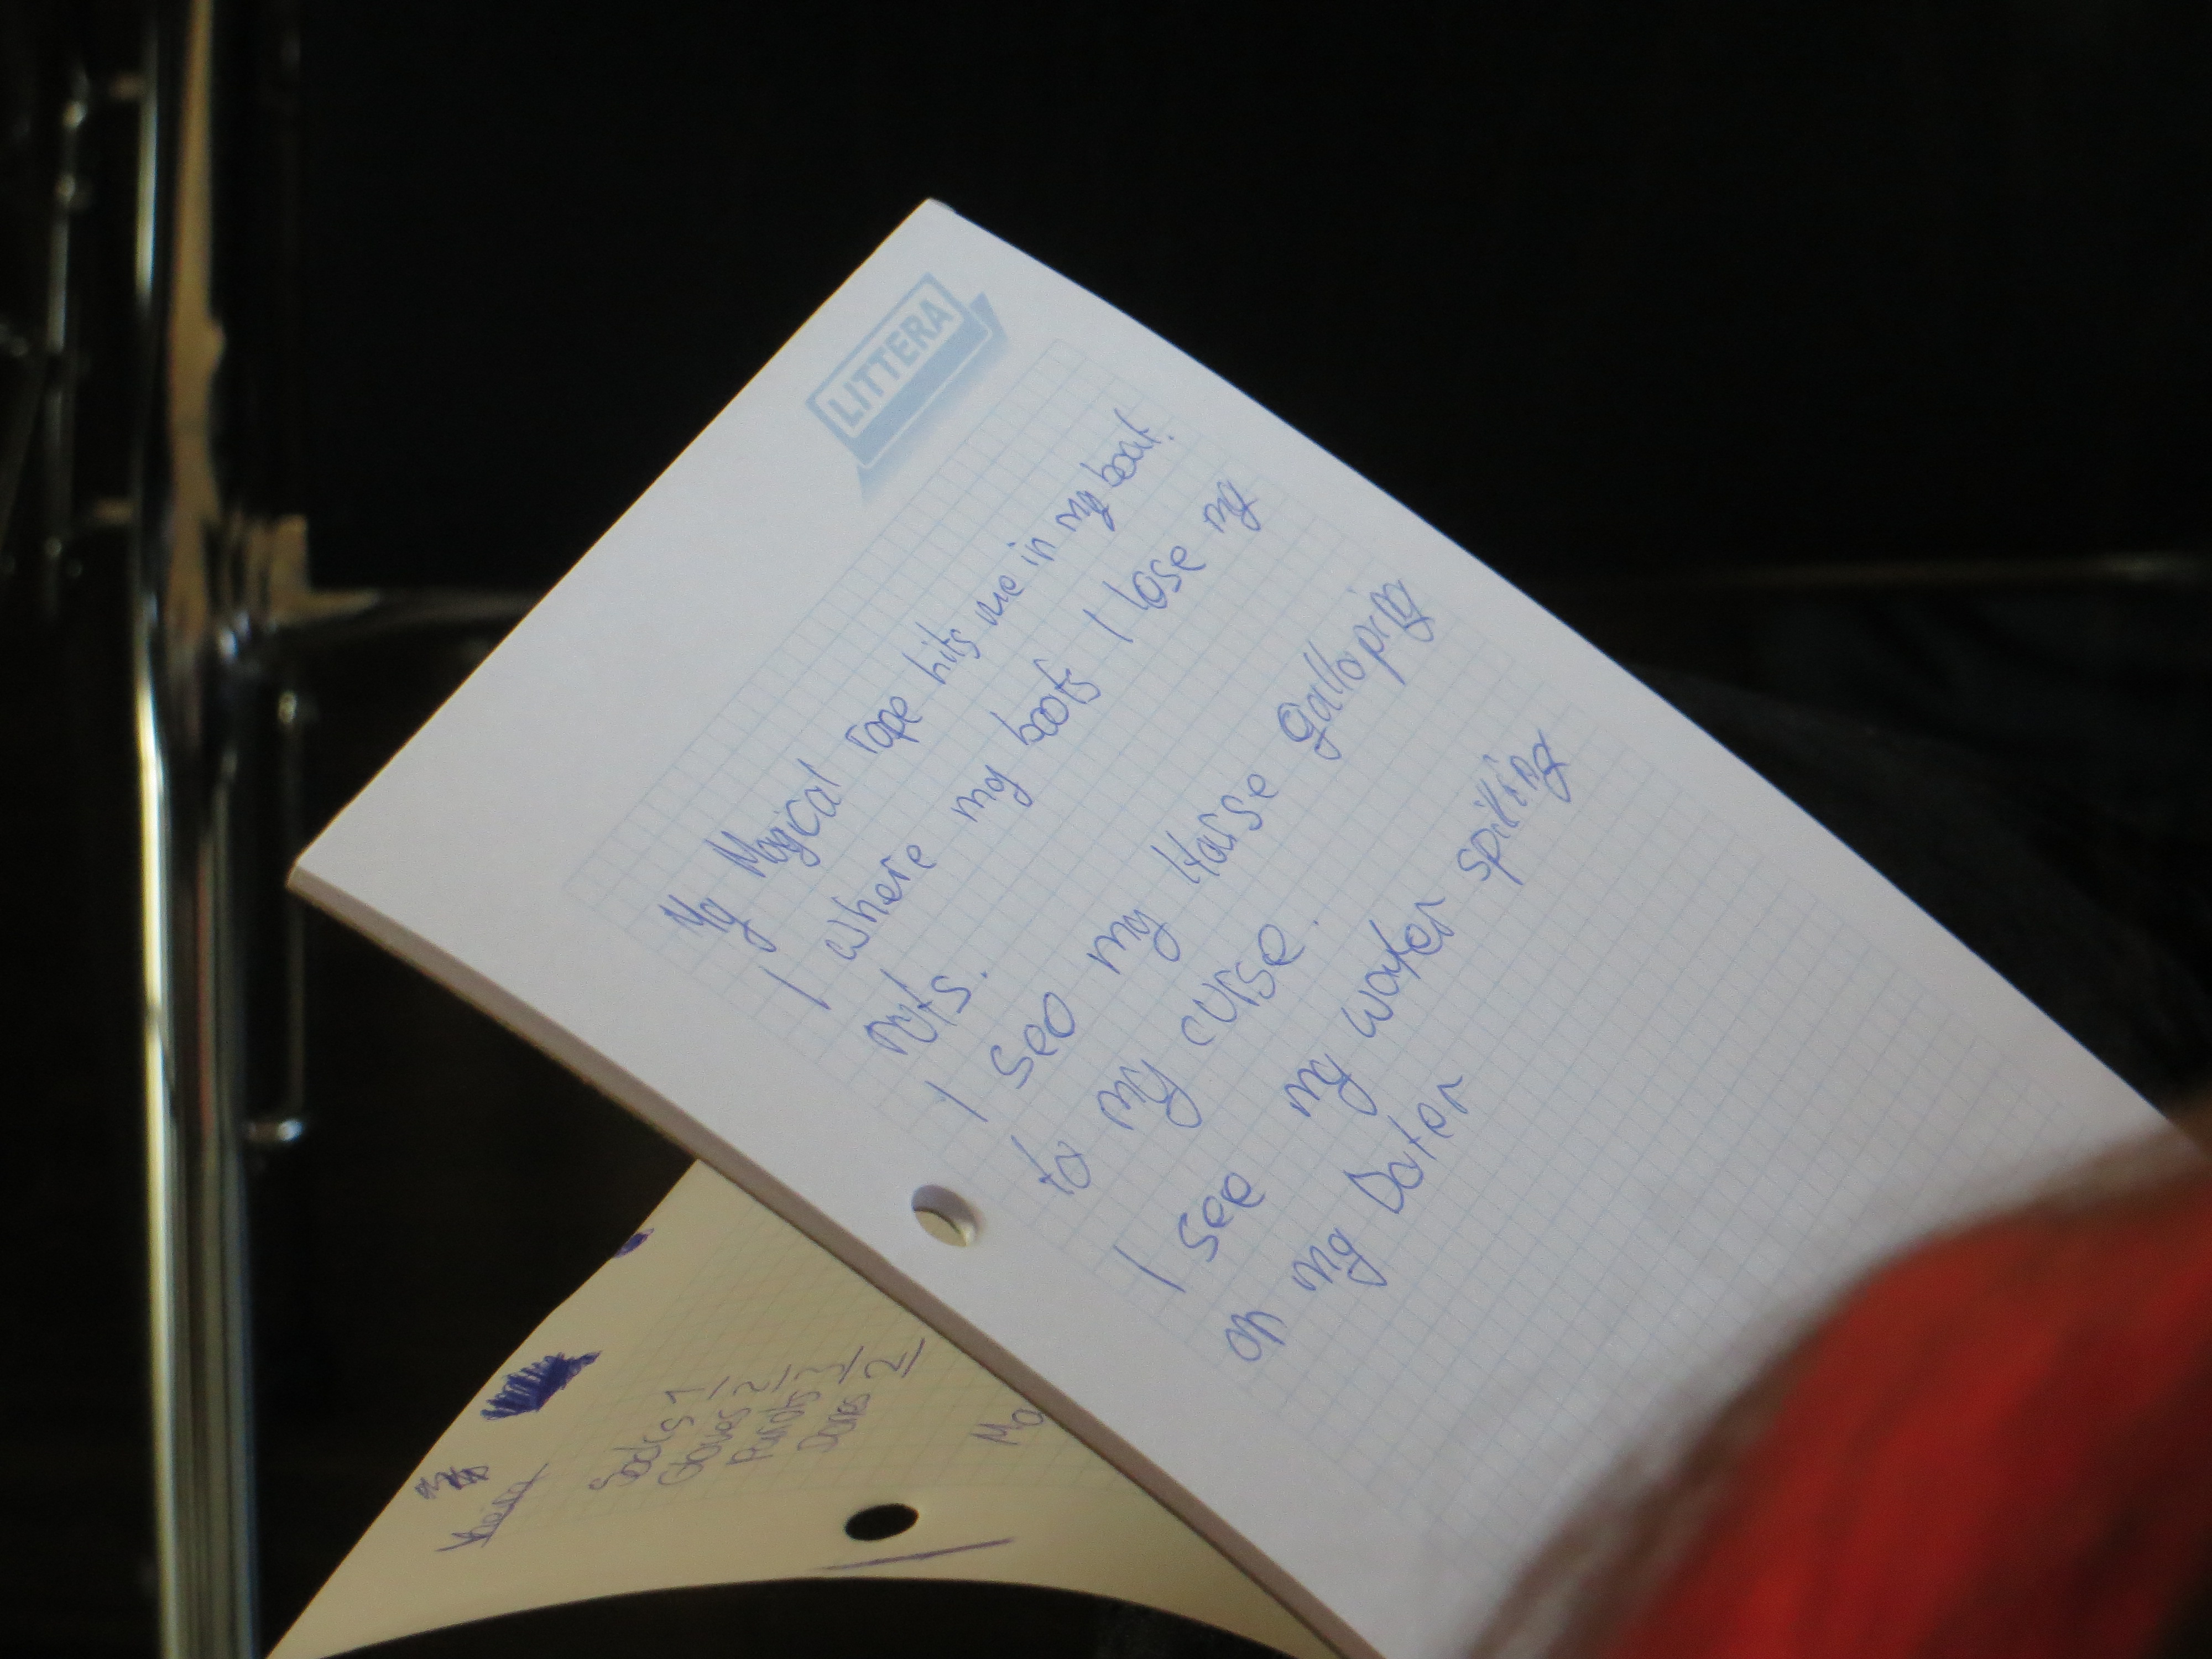 LITTERA
My Magical rope hits me in my boat.
I where my boots I lose my
nuts.
I see my Horse galloping
to my curse.
I see my water spilting
on my Dater
Socks 1
Gloves 2
Pants 3
2
Mo